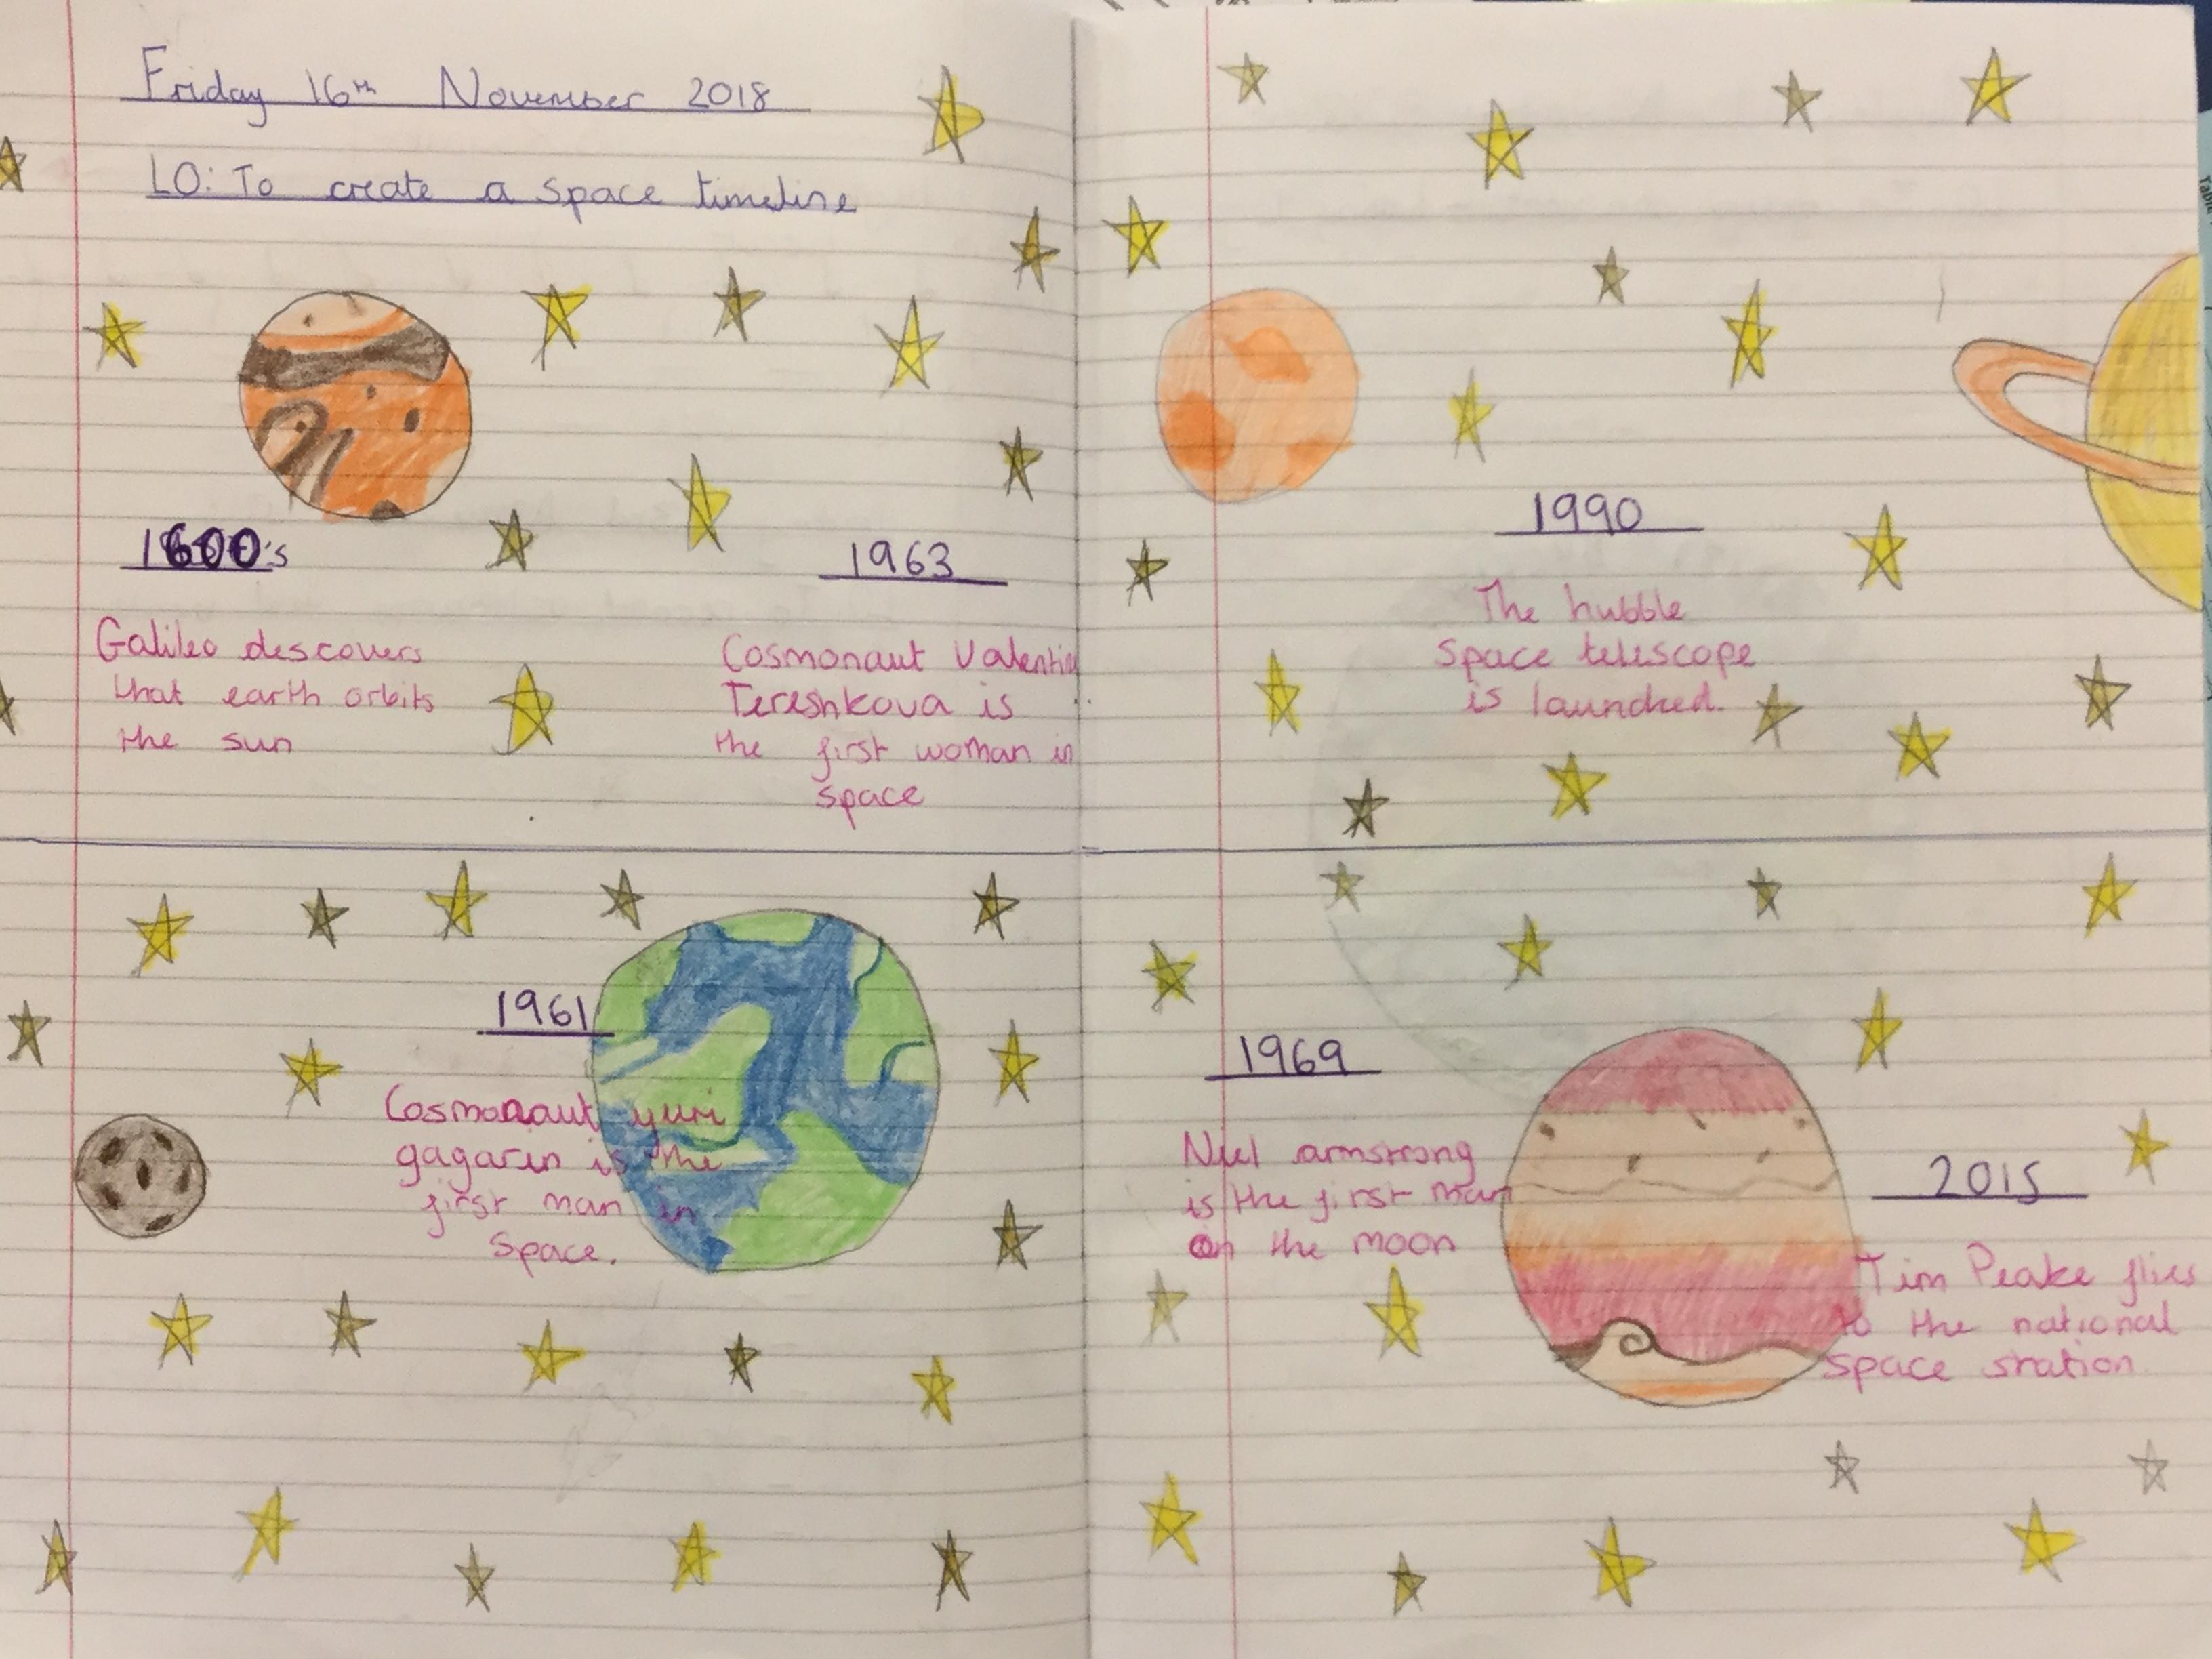 Friday 16th November 2018
LO: To create a space timeline
1600's
Galileo descovers
that earth orbits
the sun
1963
Cosmonaut Valentia
Tereshkova is
the first woman in
space
1990
The hubble
space telescope
is launched.
1961
Cosmonaut yuri
gagarin is the
first man in
space.
1969
Niel armstrong
is the first man
on the moon
2015
Tim Peake flies
to the national
space station.